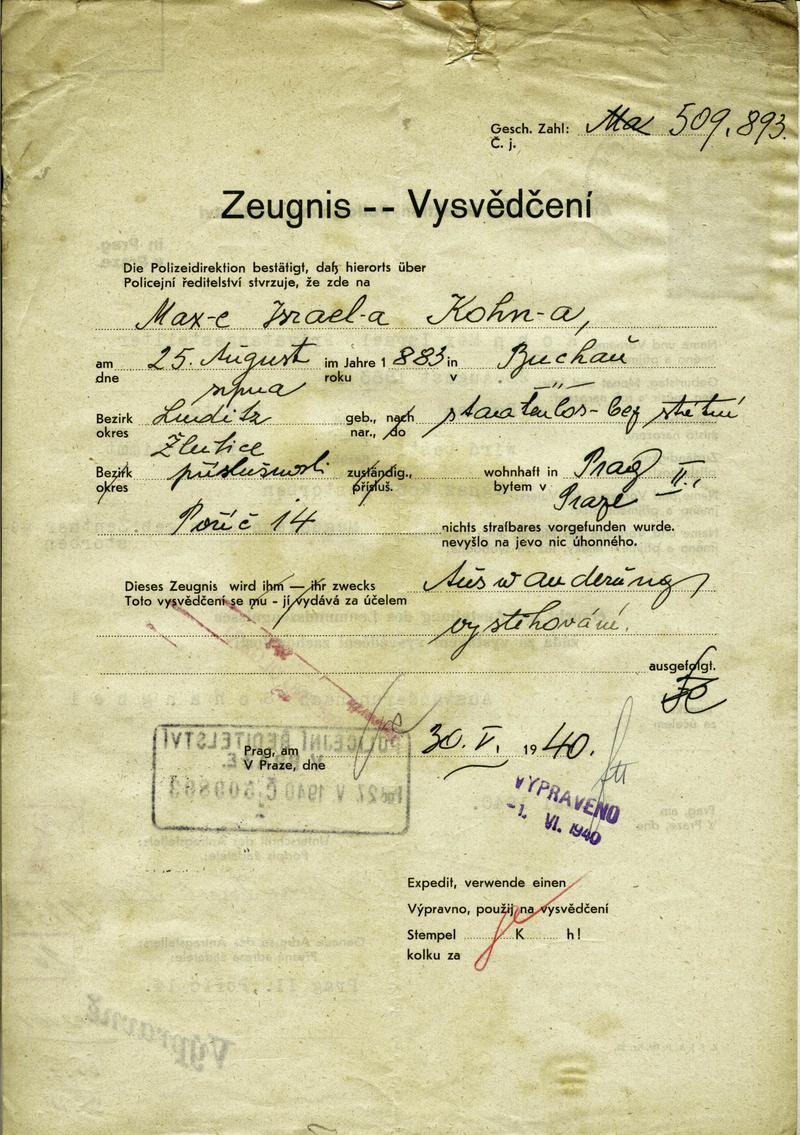 Gesch. Zahl: Ma 509.893.
Č. j.
Zeugnis -- Vysvědčení
Die Polizeidirektion bestätigt, daß hierorts über
Policejní ředitelství stvrzuje, že zde na
Max-e Israel-a Kohn-a,
am 25. August im Jahre 1 883 in Buchau
dne srpna roku v
Bezirk Luditz geb., nach staatenlos - bez státní
okres Žlutice nar., do
Bezirk příslušnosti zuständig., wohnhaft in Prag II.,
okres přísluš. bytem v Praze
Poříč 14 nichts strafbares vorgefunden wurde.
nevyšlo na jevo nic úhonného.
Dieses Zeugnis wird ihm — ihr zwecks Auswanderung
Toto vysvědčení se mu - jí vydává za účelem
vystěhování.
ausgefolgt.
Prag, am 30. V. 19 40.
V Praze, dne
VYPRAVENO
-1. VI. 1940
Expedit, verwende einen
Výpravno, použij na vysvědčení
Stempel K h!
kolku za